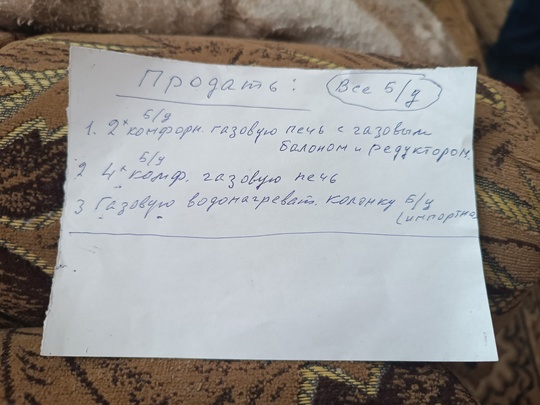 Продать: Все б/у
б/у
1. 2х конфорн. газовую печь с газовым
балоном и редуктором.
б/у
2 4х комф. газовую печь
3 Газовую водонагреват. колонку б/у
(импортна